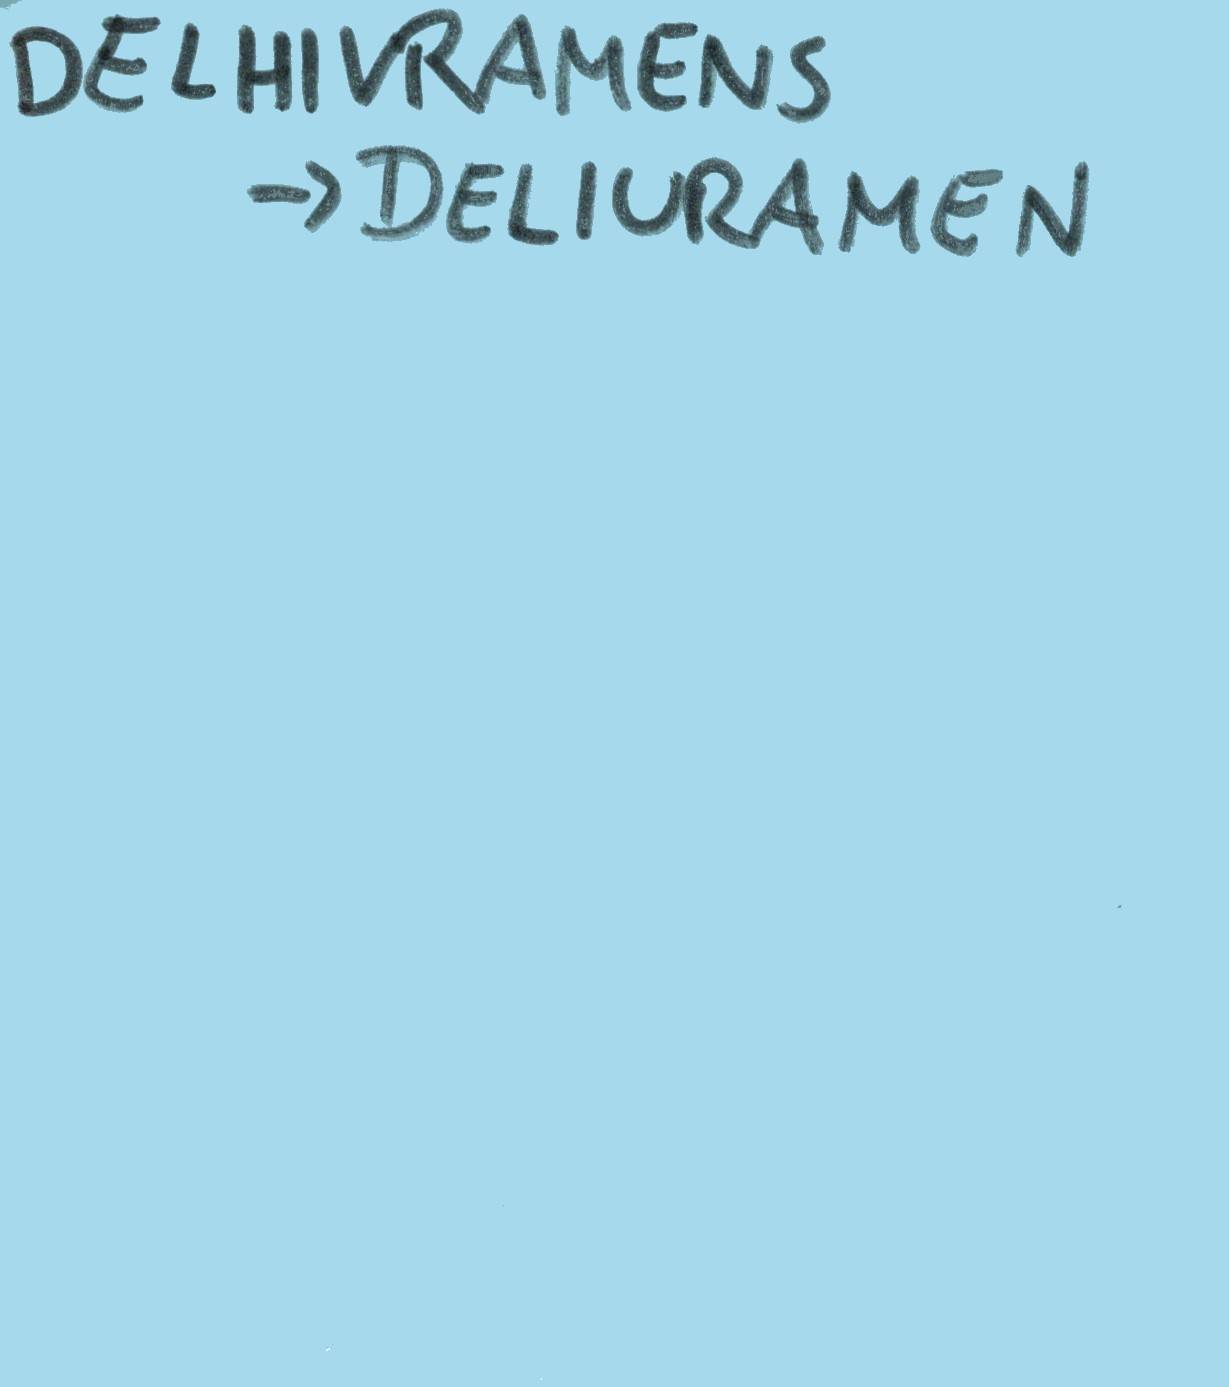 DELHIVRAMENS
-> DELIURAMEN